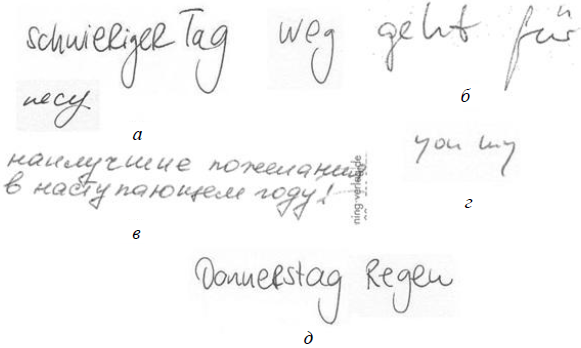 schwieriger Tag weg geht für
несу
а
б
наилучшие пожелания
в наступающем году!
you my
в
г
Donnerstag Regen
д